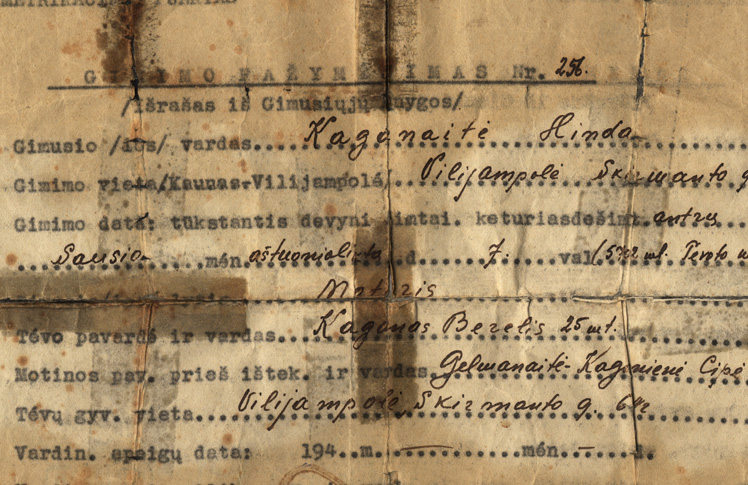 GIMIMO PAŽYMĖJIMAS Nr. 256.
/Išrašas iš Gimusiųjų knygos/
Gimusio /ios/ vardas.... Kaganaitė Hinda
Gimimo vieta/Kaunas-Vilijampolė/. Vilijampolė Skirmanto g
Gimimo data: tūkstantis devyni šimtai. keturiasdešimt. antrų
Sausio mėn. aštuonioliktą d. 7. val (5702 m. Teveto
Moteris
Tėvo pavardė ir vardas... Kaganas Berelis 25 mt.
Motinos pav. prieš ištek. ir vardas. Gelmanaitė-Kaganienė Cipė
Tėvų gyv. vieta.... Vilijampolė, Skirmanto g.
Vardin. apeigų data: 194..m. — mėn. —